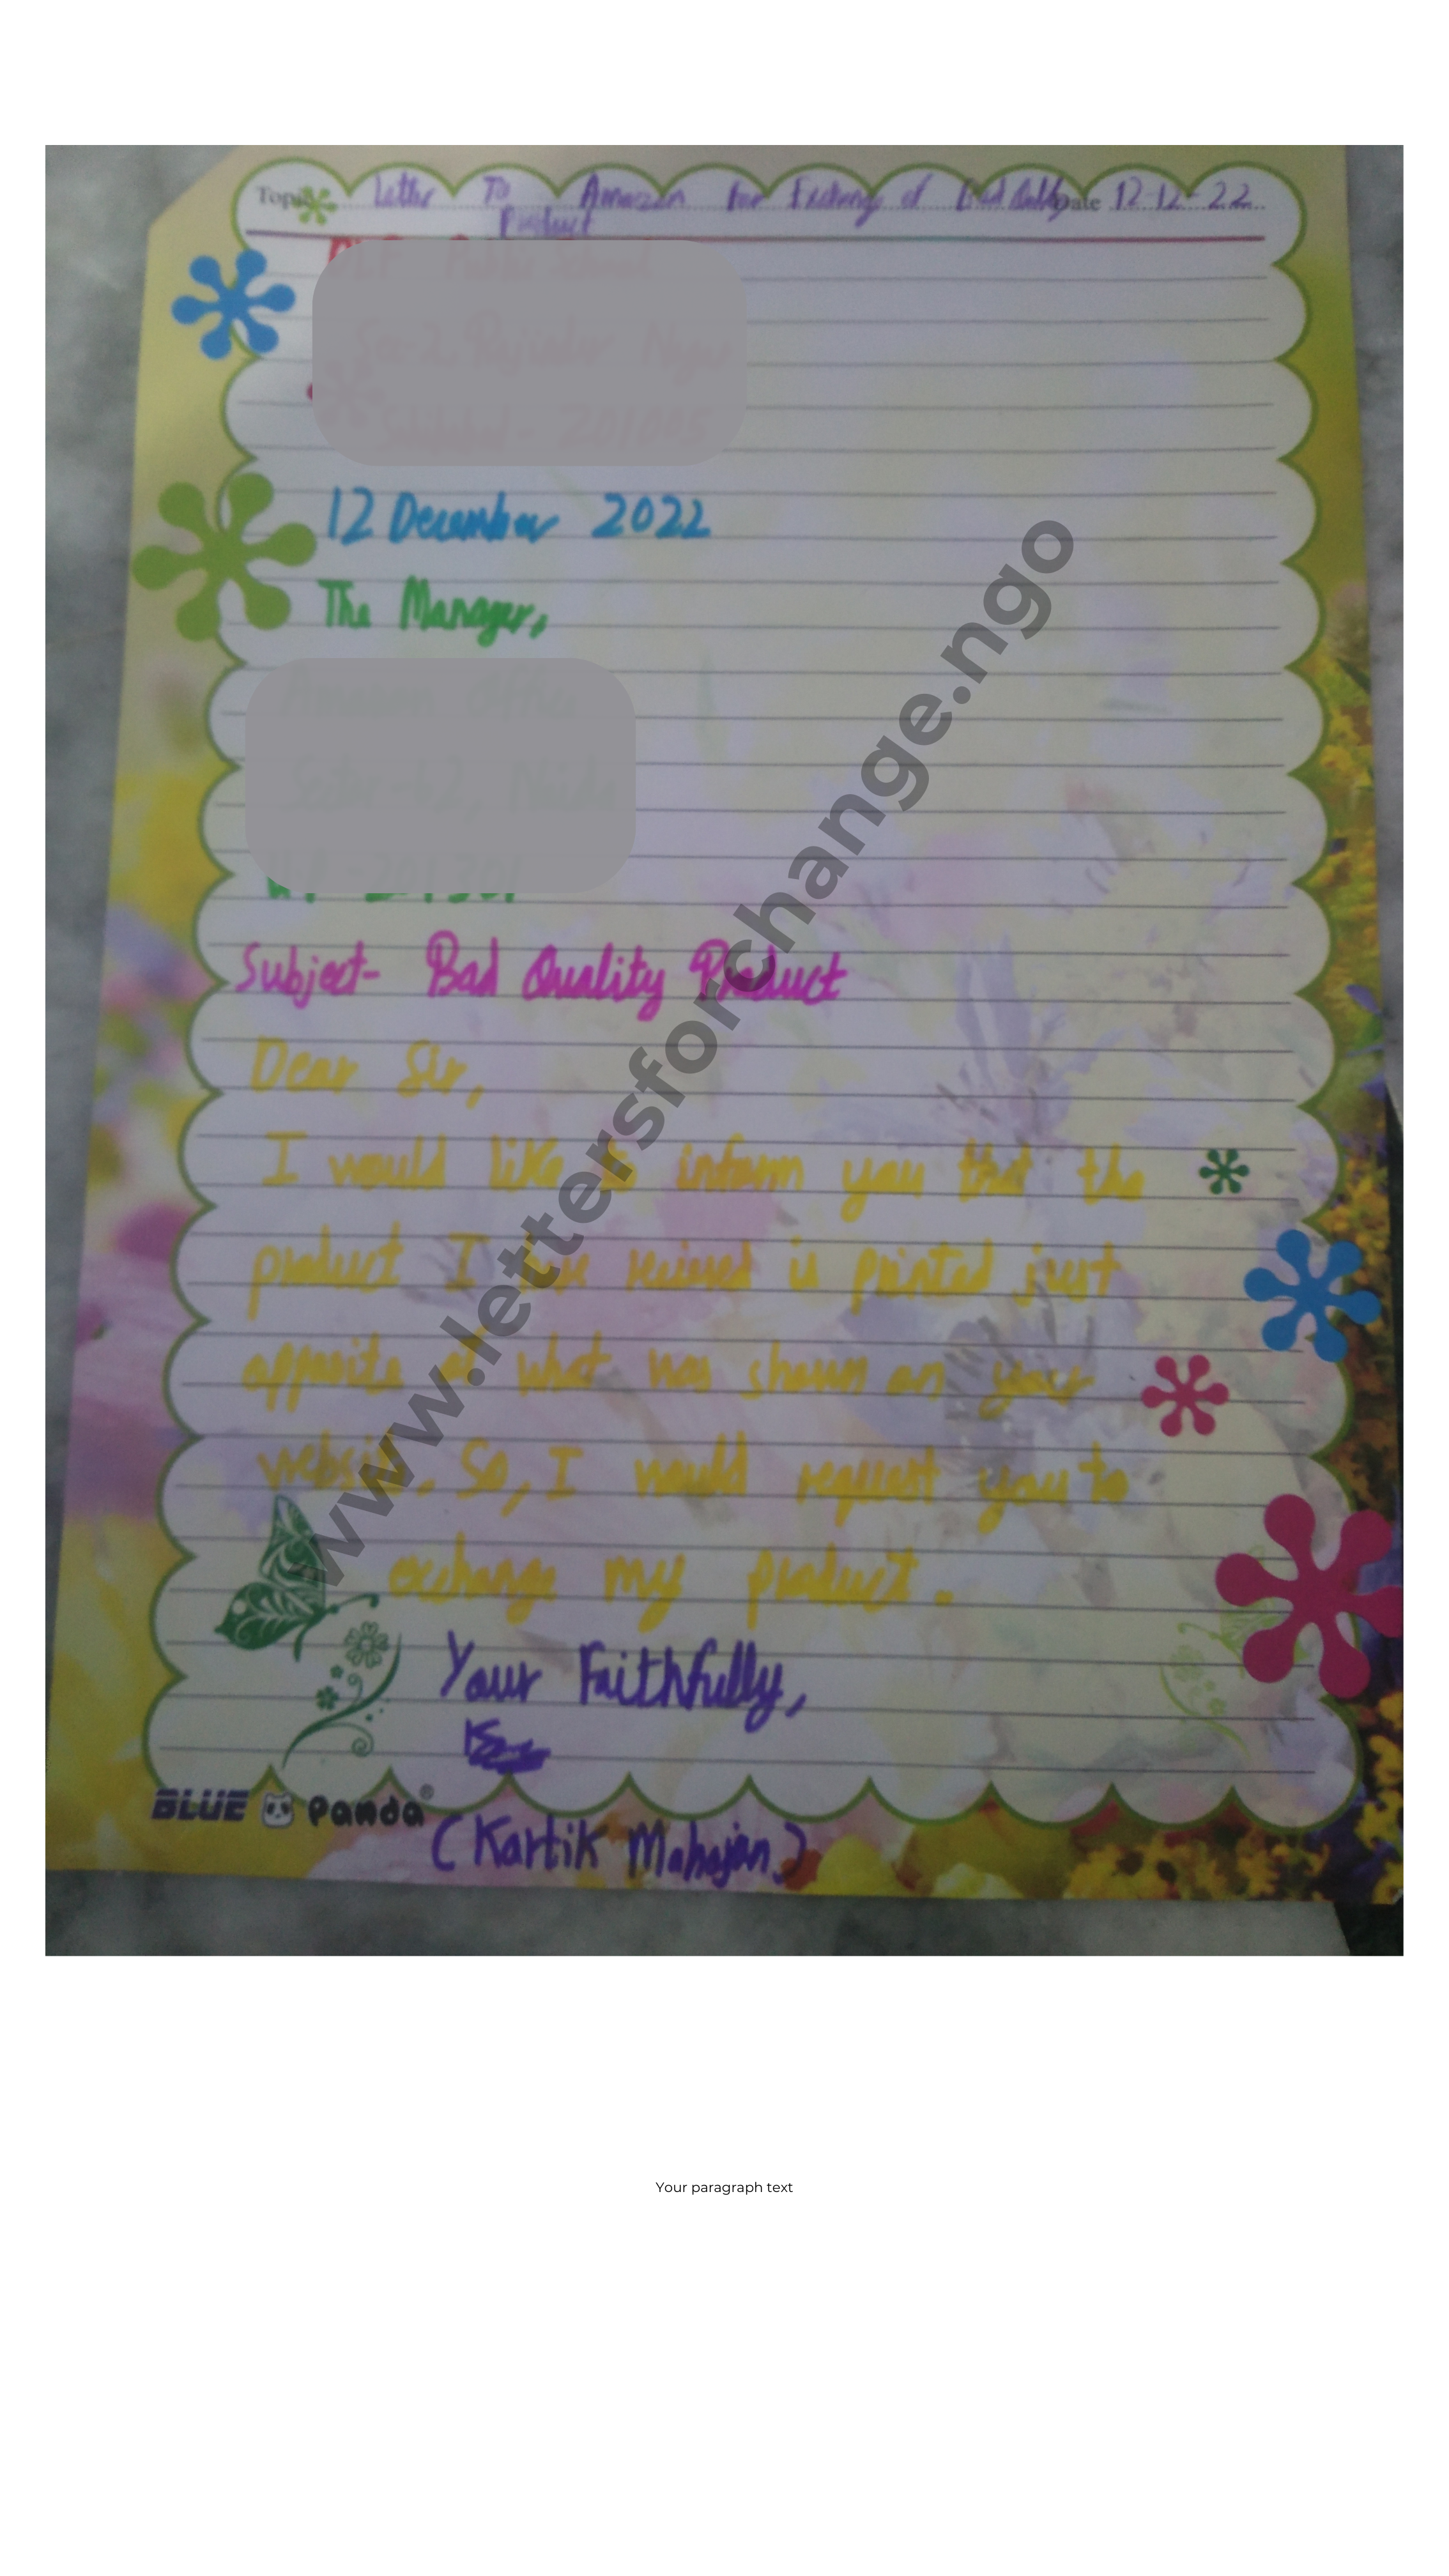 Topic Letter To Amazon for Exchange of Bad Quality Date 12-12-22
Product
12 December 2022
The Manager,
Subject- Bad Quality Product
Dear Sir,
I would like to inform you that the
product I have recieved is printed just
opposite of what was shown on your
website. So, I would request you to
exchange my product.
Your Faithfully,
(Kartik Mahajan)
BLUE Panda®
www.lettersforchange.ngo
Your paragraph text